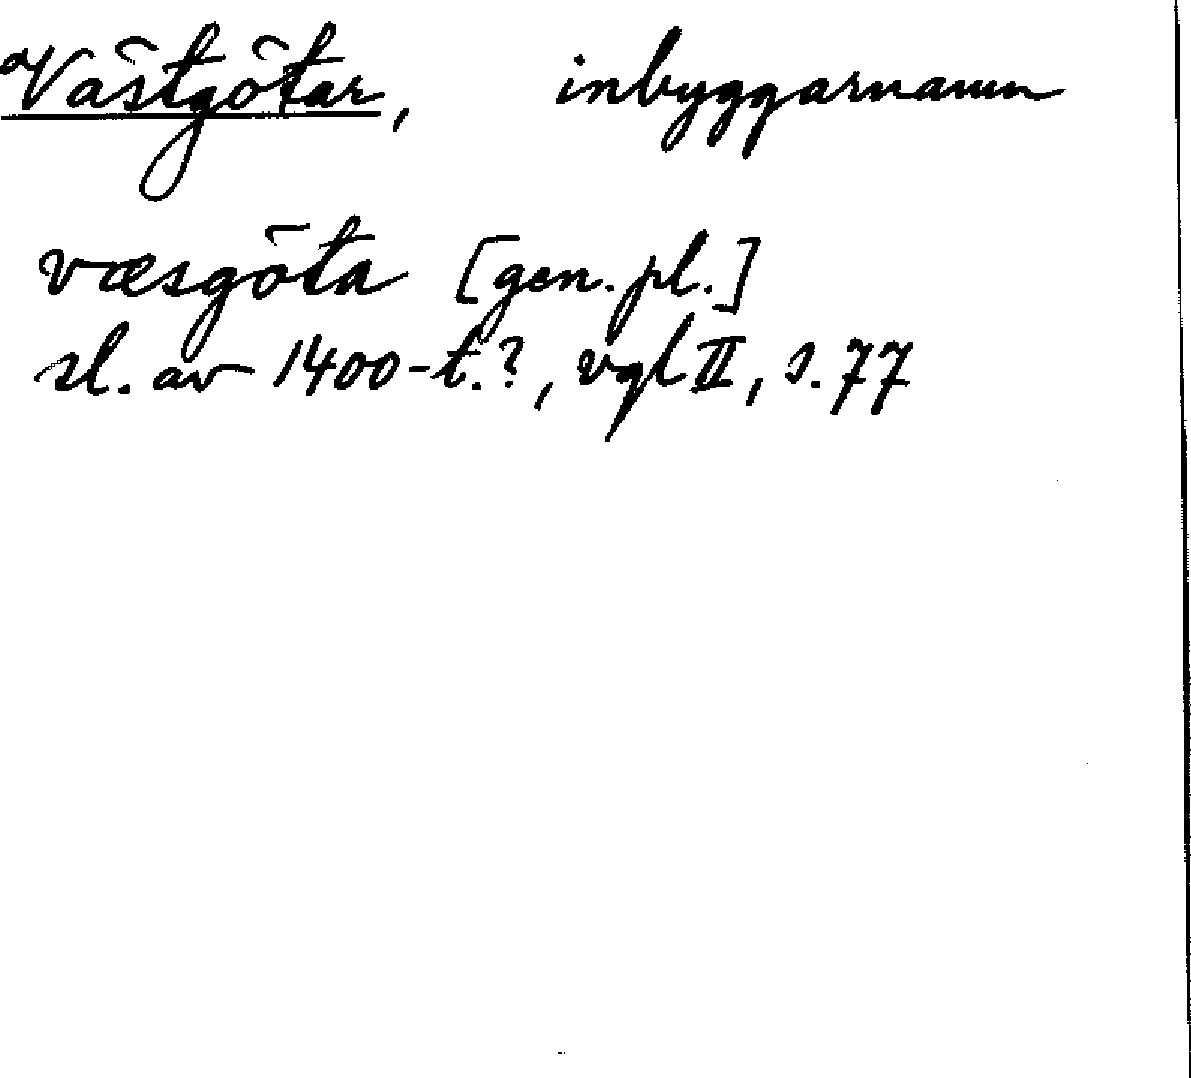 Västgötar, inbyggarnamn
væsgöta [gen. pl.]
sl. av 1400-t.?, vgl II, s. 77